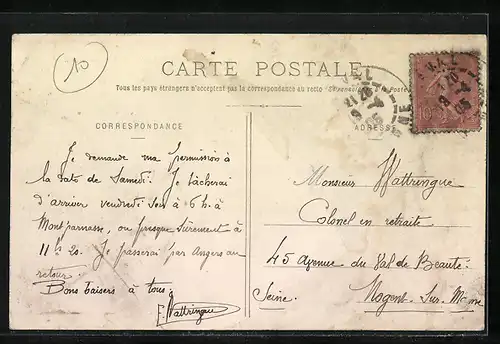 10
CARTE POSTALE
Tous les pays étrangers n'acceptent pas la correspondance au recto
CORRESPONDANCE
ADRESSE
Je demande ma permission à
la date de Samedi. Je tâcherai
d'arriver vendredi soir à 6h. à
Montparnasse, ou presque sûrement à
11h 20. Je passerai par Angers au
retour.
Bons baisers à tous.
F. Wattringue
Monsieur Wattringue
Colonel en retraite
45 Avenue du Val de Beauté
Nogent-Sur-Marne
Seine.